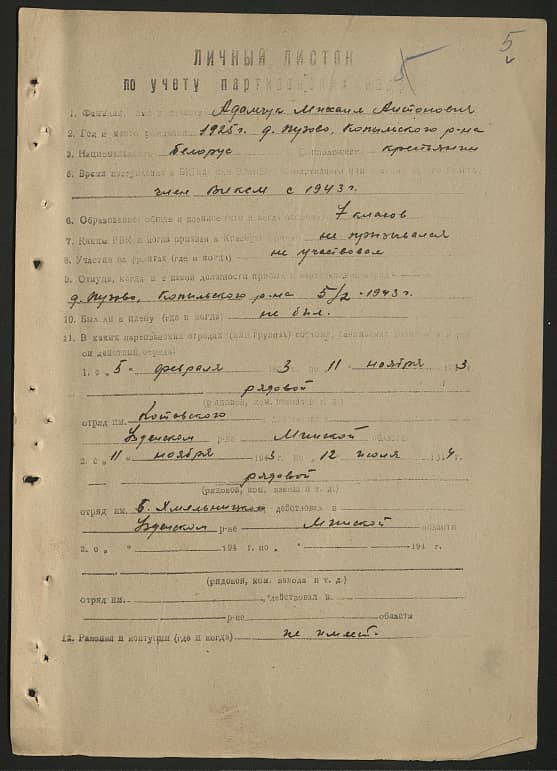 5
ЛИЧНЫЙ ЛИСТОК
по учету партизанских
1. Фамилия, имя Адамчук Михаил Антонович
2. Год и место рождения 1925 г. д. Пузово, Копыльского р-на
3. Национальность Белорус крестьянин
5. Время вступления в
член ВЛКСМ с 1943 г.
6. Образование общее и военное 7 класов
7. Каким РВК и когда призван в Красную не призывался
8. Участие на фронтах (где и когда) не участвовал
9. Откуда, когда и с какой должности
д. Пузово, Копыльского р-на 5/2 - 1943 г.
10. Был ли в плену (где и когда) не был.
11. В каких партизанских отрядах (или группах)
ой действий отряда
1. с „5" февраля 1943 по 11 ноября 1943
рядовой
(рядовой, ком. взвода и т. д.)
отряд им.
Узденском р-не Минской области
2. с „11" ноября 1943 по 12 июля 1944
рядовой
(рядовой, ком. взвода и т. д.)
отряд им. Б. Хмельницкого действовал в
Узденском р-не Минской области
3. с „ " 194 г. по „ " 194 г.
(рядовой, ком. взвода и т. д.)
отряд им. „действовал в
р-не области
12. Ранения и контузии (где и когда) не имеет.